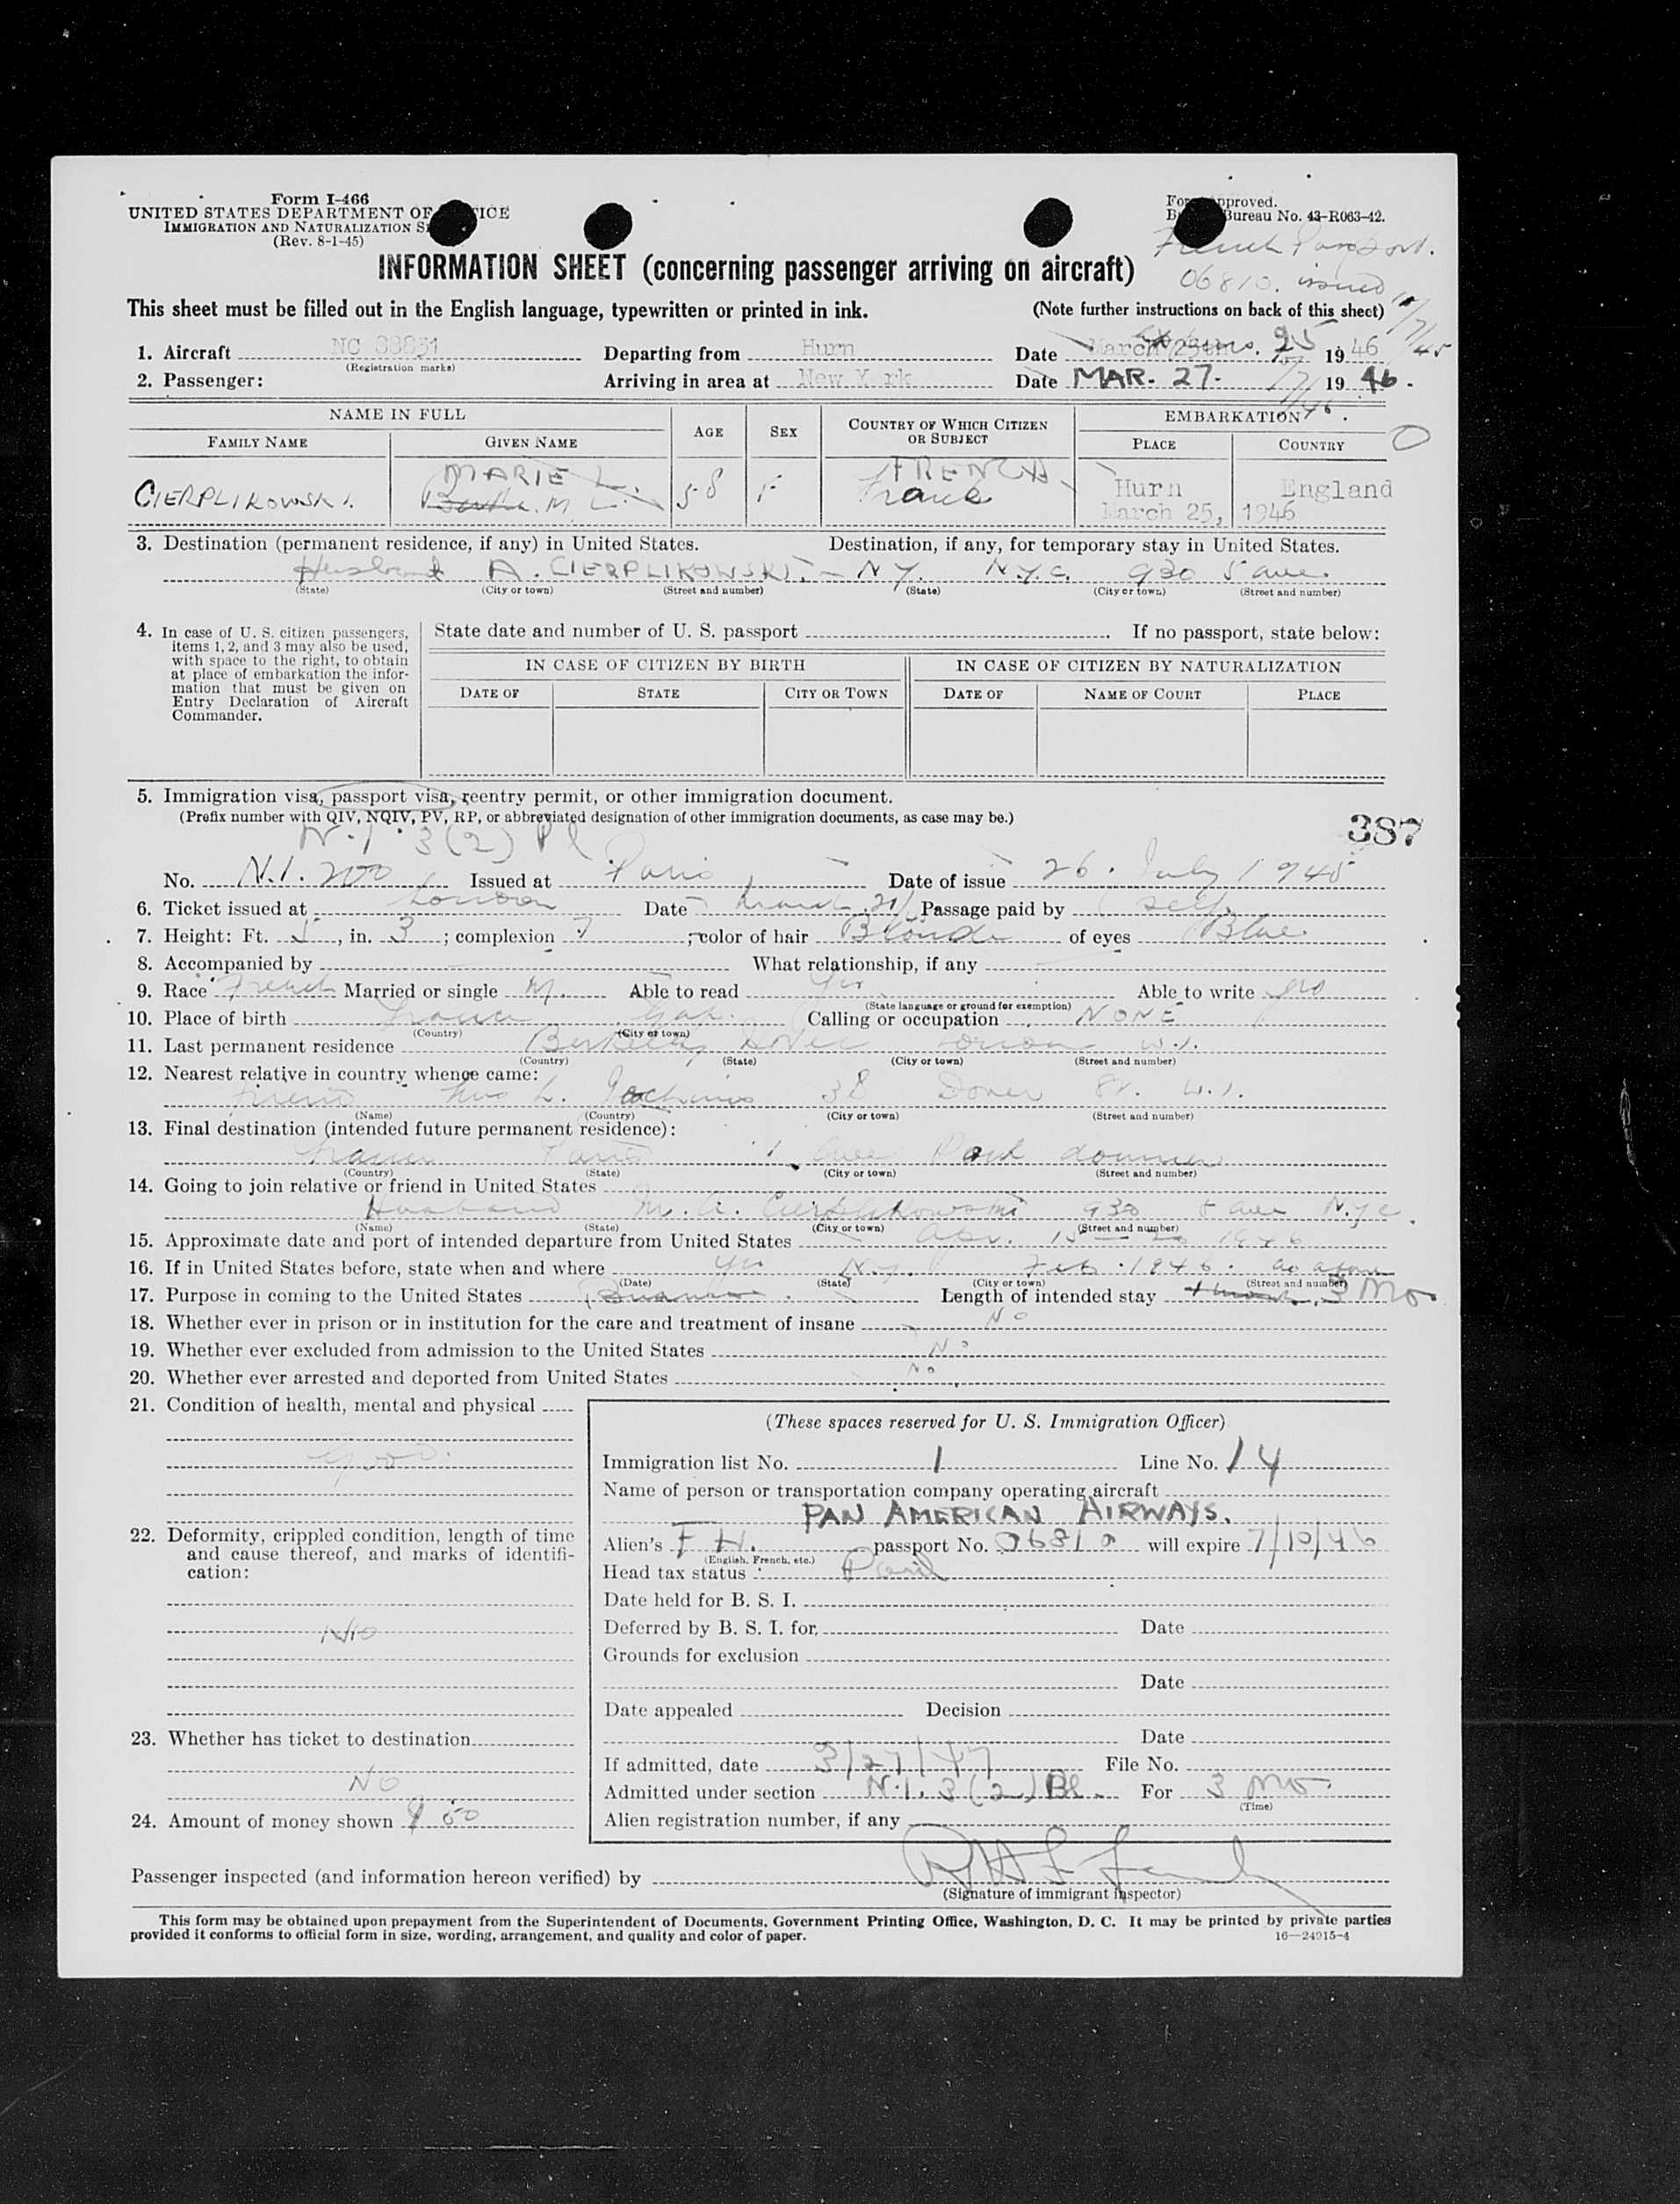 Form I-466
UNITED STATES DEPARTMENT OF TICE
IMMIGRATION AND NATURALIZATION S
(Rev. 8-1-45)
Form approved.
Bureau No. 43-R063-42.
French Passport.
06810. issued 10/7/45
INFORMATION SHEET (concerning passenger arriving on aircraft)
This sheet must be filled out in the English language, typewritten or printed in ink. (Note further instructions on back of this sheet)
1. Aircraft NC 88831 Departing from Hurn Date March 25th 25 1946
(Registration marks)
2. Passenger: Arriving in area at New York Date MAR. 27. 1946.
NAME IN FULL AGE SEX COUNTRY OF WHICH CITIZEN OR SUBJECT EMBARKATION
FAMILY NAME GIVEN NAME PLACE COUNTRY
CIERPLIKOWSKI. MARIE L. Berthe. M. L. 58 F FRENCH France Hurn England
March 25, 1946
3. Destination (permanent residence, if any) in United States. Destination, if any, for temporary stay in United States.
Husband A. CIERPLIKOWSKI. - N.Y. N.Y.C. 930 5 ave.
(State) (City or town) (Street and number) (State) (City or town) (Street and number)
4. In case of U. S. citizen passengers, items 1, 2, and 3 may also be used, with space to the right, to obtain at place of embarkation the information that must be given on Entry Declaration of Aircraft Commander.
State date and number of U. S. passport . If no passport, state below:
IN CASE OF CITIZEN BY BIRTH IN CASE OF CITIZEN BY NATURALIZATION
DATE OF STATE CITY OR TOWN DATE OF NAME OF COURT PLACE
5. Immigration visa, passport visa, reentry permit, or other immigration document.
(Prefix number with QIV, NQIV, PV, RP, or abbreviated designation of other immigration documents, as case may be.)
387
N.I. 3(2) Pl
No. N.I. 200 Issued at Paris Date of issue 26. July 1945
6. Ticket issued at London Date March 21/ Passage paid by self.
7. Height: Ft. 5, in. 3; complexion 7; color of hair Blonde of eyes Blue.
8. Accompanied by What relationship, if any
9. Race French Married or single M. Able to read Yes Able to write yes
(State language or ground for exemption)
10. Place of birth France Gap. Calling or occupation NONE
(Country) (City or town)
11. Last permanent residence Berkeley Hotel London W.1.
(Country) (State) (City or town) (Street and number)
12. Nearest relative in country whence came:
friend Mrs L. 38 Dover St. W.1.
(Name) (Country) (City or town) (Street and number)
13. Final destination (intended future permanent residence):
France Paris 1. Ave Paul doumer
(Country) (State) (City or town) (Street and number)
14. Going to join relative or friend in United States
Husband M. A. Cierplikowski 930 5 ave N.Y.C.
(Name) (State) (City or town) (Street and number)
15. Approximate date and port of intended departure from United States Apr. 15 1946
16. If in United States before, state when and where Yes N.Y. Feb. 1946. as above
(Date) (State) (City or town) (Street and number)
17. Purpose in coming to the United States Length of intended stay 1 month. 3 Mo.
18. Whether ever in prison or in institution for the care and treatment of insane No
19. Whether ever excluded from admission to the United States No
20. Whether ever arrested and deported from United States No
21. Condition of health, mental and physical
good.
22. Deformity, crippled condition, length of time and cause thereof, and marks of identification:
No
23. Whether has ticket to destination
NO
24. Amount of money shown $ 50
(These spaces reserved for U. S. Immigration Officer)
Immigration list No. 1 Line No. 14
Name of person or transportation company operating aircraft
PAN AMERICAN AIRWAYS.
Alien's FH. passport No. 06810 will expire 7/10/46
(English, French, etc.)
Head tax status Paid
Date held for B. S. I.
Deferred by B. S. I. for Date
Grounds for exclusion
Date
Date appealed Decision
Date
If admitted, date 3/27/47 File No.
Admitted under section N.I. 3(2) Bl. For 3 mo.
(Time)
Alien registration number, if any
Passenger inspected (and information hereon verified) by
(Signature of immigrant inspector)
This form may be obtained upon prepayment from the Superintendent of Documents, Government Printing Office, Washington, D. C. It may be printed by private parties
provided it conforms to official form in size, wording, arrangement, and quality and color of paper. 16—24915-4